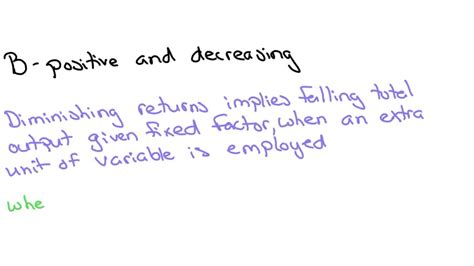 B - positive and decreasing
Diminishing returns implies falling total
output given fixed factor, when an extra
unit of variable is employed
whe